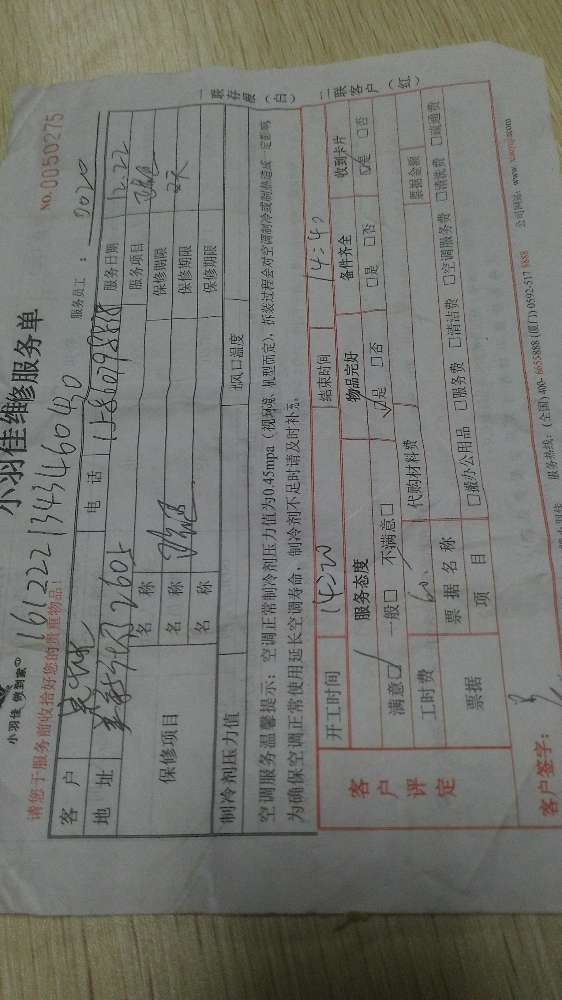 NO.0050275
小羽佳维修服务单
小羽佳 例到家
161222134346040
请您于服务前收拾好您的贵重物品!
服务员工: 2020
客户
服务日期 12.22
地址 2605
电话
服务项目
保修项目
名称 保修期限 2天
名称 保修期限
名称 保修期限
制冷剂压力值
出风口温度
空调服务温馨提示:空调正常制冷剂压力值为0.45mpa(视环境、机型而定),拆装过程会对空调制冷或制热造成一定影响
为确保空调正常使用延长空调寿命,制冷剂不足时请及时补充。
一联存根(白)
二联客户(红)
开工时间 14:20 结束时间 14:40
客户评定
服务态度 物品完好 备件齐全 收到卡片
满意□ 一般□ 不满意□ □是 □否 □是 □否 □是 □否
工时费 60 代购材料费
票据
票据名称 票据金额
项目 □服办公用品 □服务费 □清洁费 □空调服务费 □清洗费 □疏通费
客户签字:
服务热线:(全国)400-6655888(厦门)0592-5175888
公司网站:www